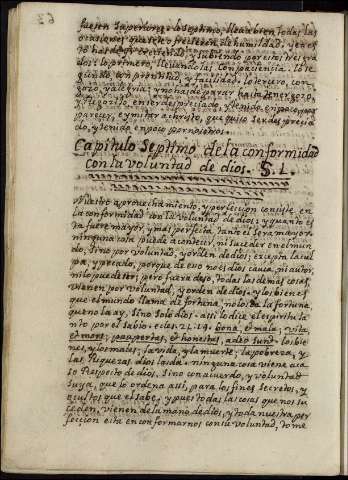 fuesen superiores. lo septimo, lleva bien todas las
ocasiones que se le ofrecieren de humildad, y en es
to has de ir creciendo, y subiendo por estos tres gra
dos: lo primero, llevandolas con paciencia. lo se
gundo, con prontitud, y facilidad. lo tercero, con
gozo, y alegria; y no has de parar hasta tener gozo,
y regozijo, en ser despreciado, y tenido en poco, por
parecer, e ymitar a christo, que quiso ser despreçia
do, y tenido en poco por nosotros.
Capitulo Septimo. de la conformidad
con la voluntad de dios. §. 1.
Nuestro aprovechamiento, y perfeccion consiste en
la conformidad con la voluntad de dios; y quanto es
ta fuere mayor, y mas perfecta, tanto el sera mayor.
ninguna cosa puede acontecer, ni suceder en el mun
do, sino por voluntad, y orden de dios; excepta la cul
pa, y pecado, porque de eso no es dios causa, ni autor,
ni lo puede ser; pero fuera de eso, todas las demas cosas,
vienen por voluntad, y orden de dios. y los bienes
que el mundo llama de fortuna, no los da la fortuna,
que no la ay, sino solo dios. assi lo dice el espiritu sa
nto por el sabio. eclес. 11. 14. bona, et mala; vita
et mors; paupertas, et honestas, a deo sunt. los bie
nes, y los males; la vida, y la muerte; la pobreza, y
las riquezas dios las da. ninguna cosa viene aca
so respecto de dios, sino con acuerdo, y voluntad
suya, que lo ordena assi, para los fines secretos, y
ocultos que el sabe. y pues todas las cosas que nos su
ceden, vienen de la mano de dios, y toda nuestra per
feccion esta en conformarnos con su voluntad, tome